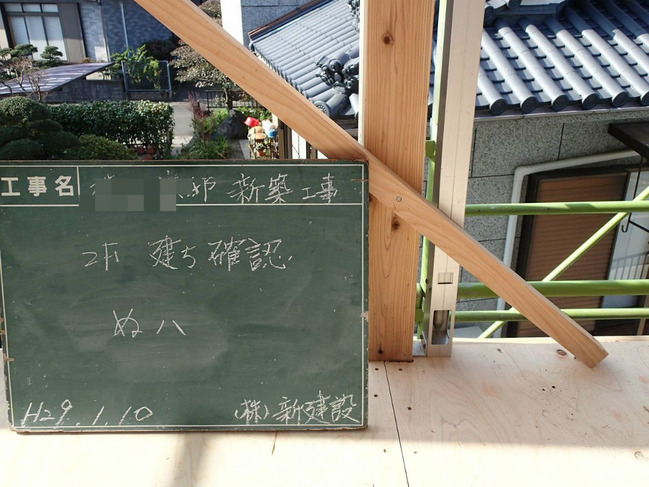 工事名 邸 新築工事
2F 建ち確認
ぬ八
H29.1.10
(株)新建設